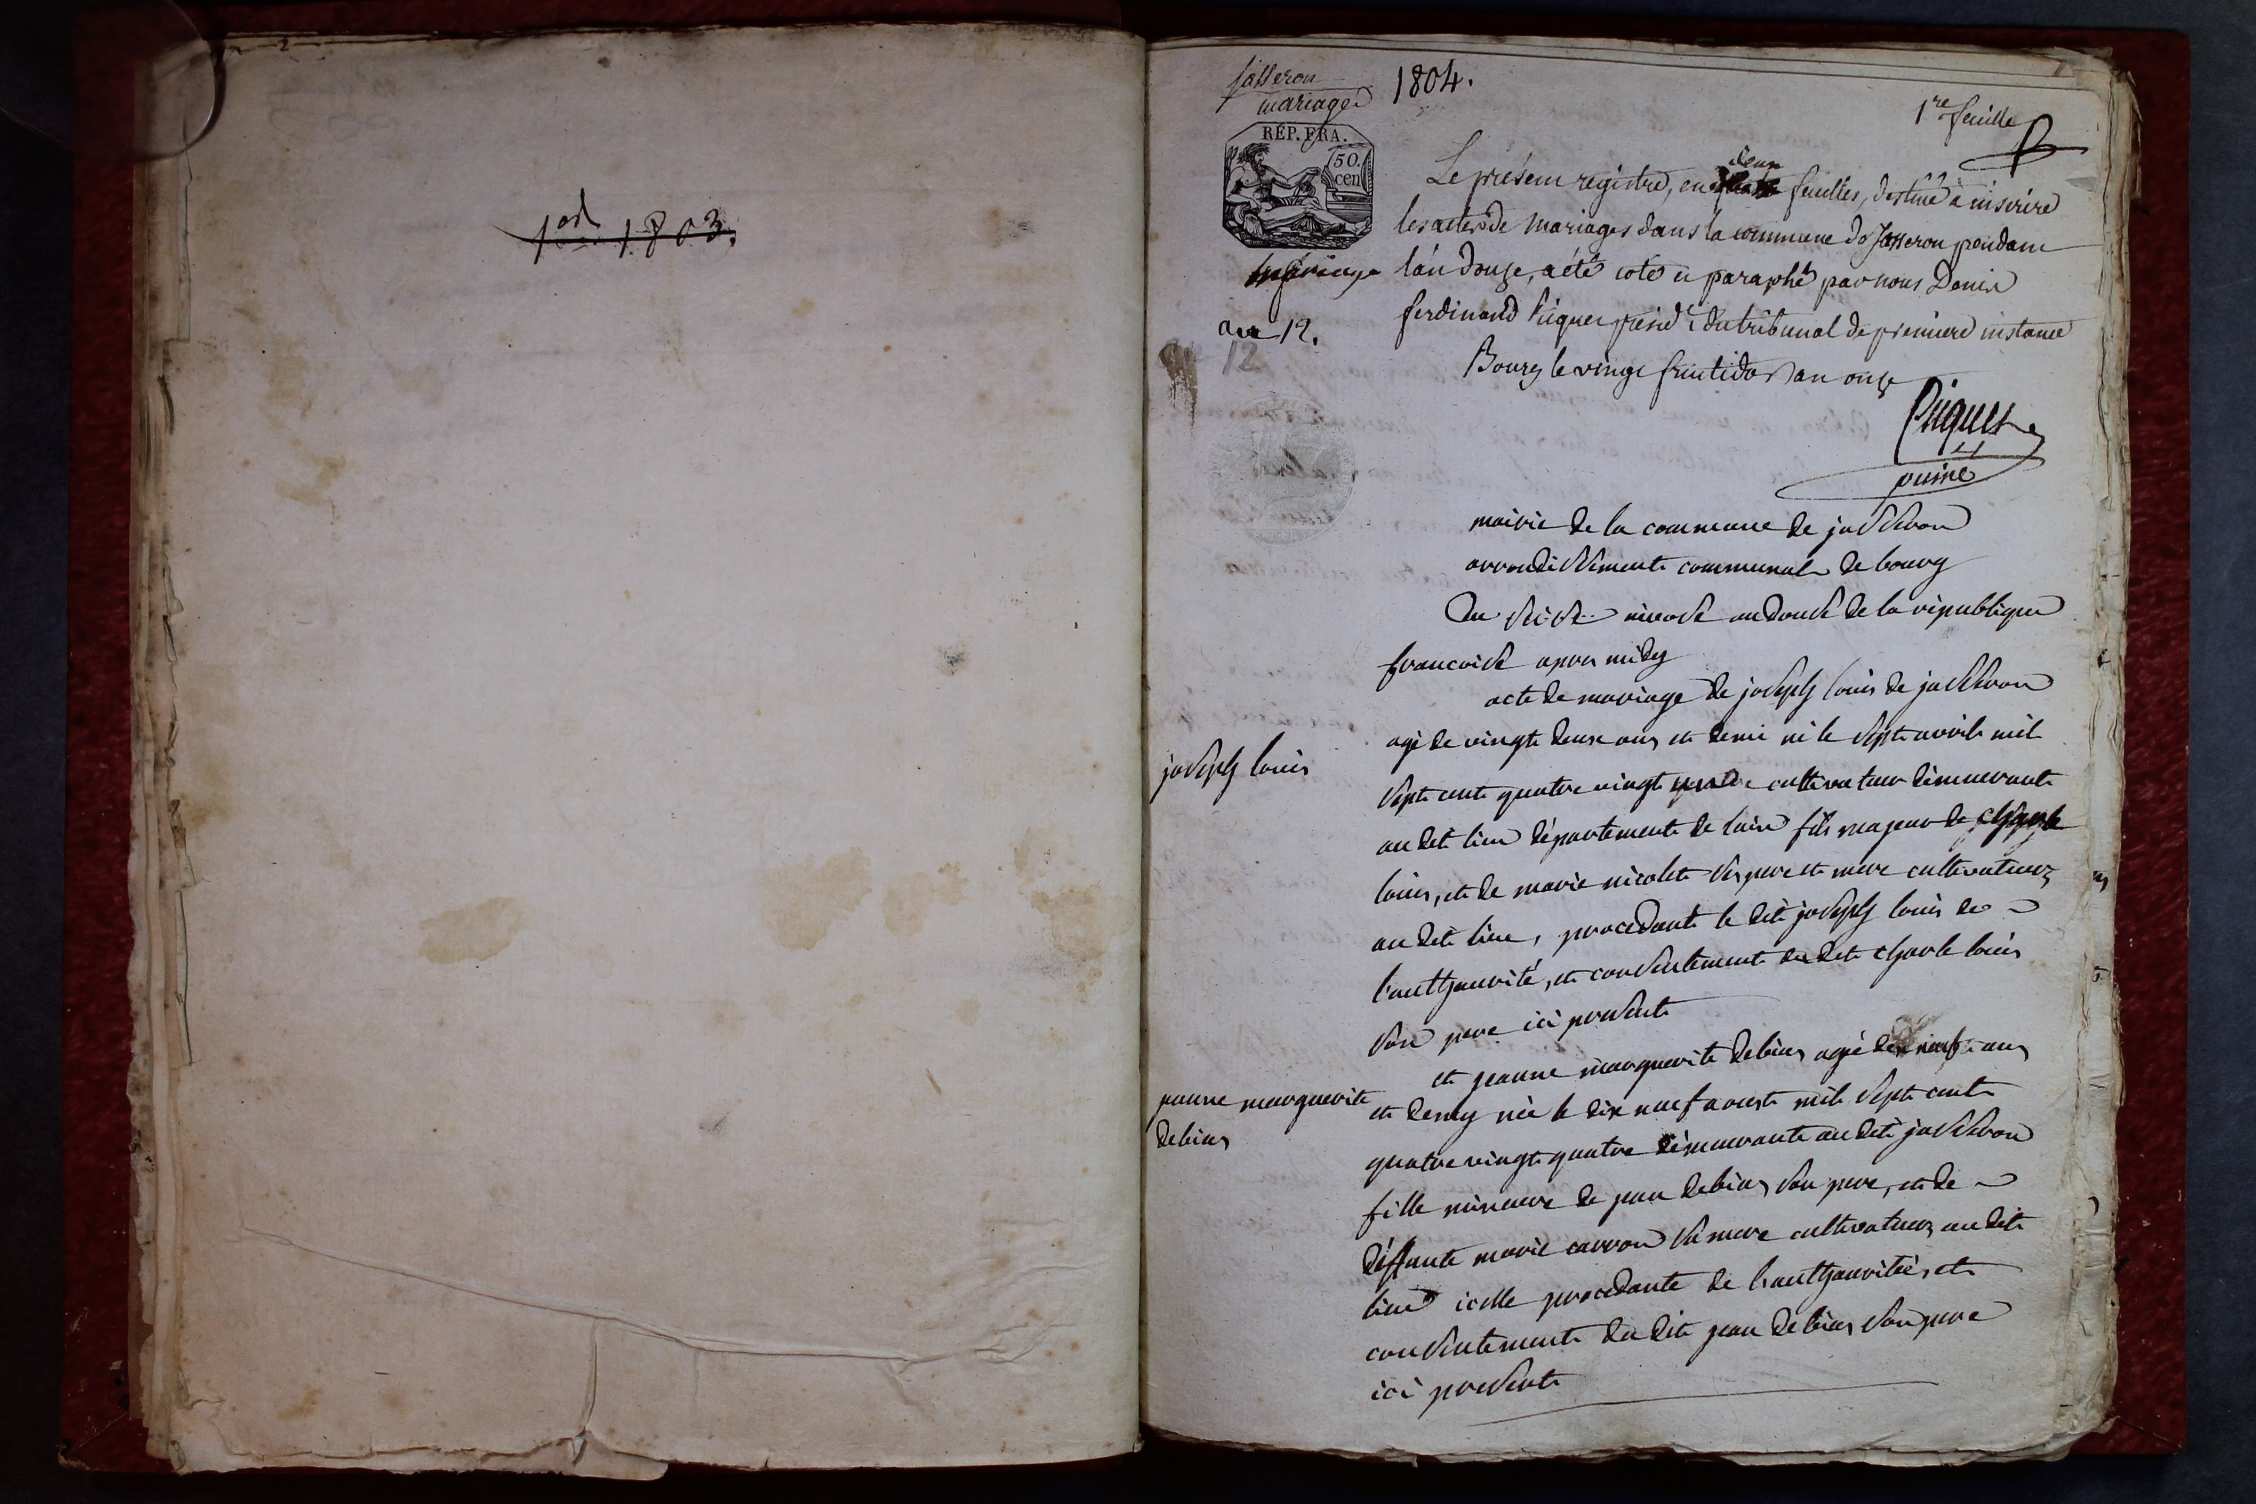 1er 1803.
Jasseron
mariages
1804.
1re feuille
RÉP. FRA.
50.
cen
Le présent registre, en deux feuilles, destiné à inscrire
les actes de mariages dans la commune de Jasseron pendant
l'an douze, a été coté et paraphé par nous Denis
ferdinand Piquet présidt du tribunal de premiere instance
Bourg le vingt fructidor an onze
mariage
an 12.
12
Piquet
puiné
mairie de la commune de jasseron
arrondissement communal de bourg
Du seize nivose an douze de la république
francoise apres midy
acte de mariage de joseph louis de jasseron
agé de vingt deux ans et demi né le sept avril mil
sept cent quatre vingt cultivateur démeurant
au dit lieu département de lain fils majeur de charle
louis, et de marie nicolet ses pere et mere cultivateurs
au dit lieu, procedant le dit joseph louis de
l'authaurité, et consentement du dit charle louis
son pere ici present
joseph louis
et jeanne marguerite debias agé dix neuf ans
et demy née le dix neuf aoust mil sept cent
quatre vingt quatre démeurante au dit jasseron
fille mineure de jean debias son pere, et de
déffunte marie carron sa mere cultivateurs au dit
lieu icelle procedante de l'authaurité, et
consentement du dit jean debias son pere
ici present
jeanne marguerite
debias